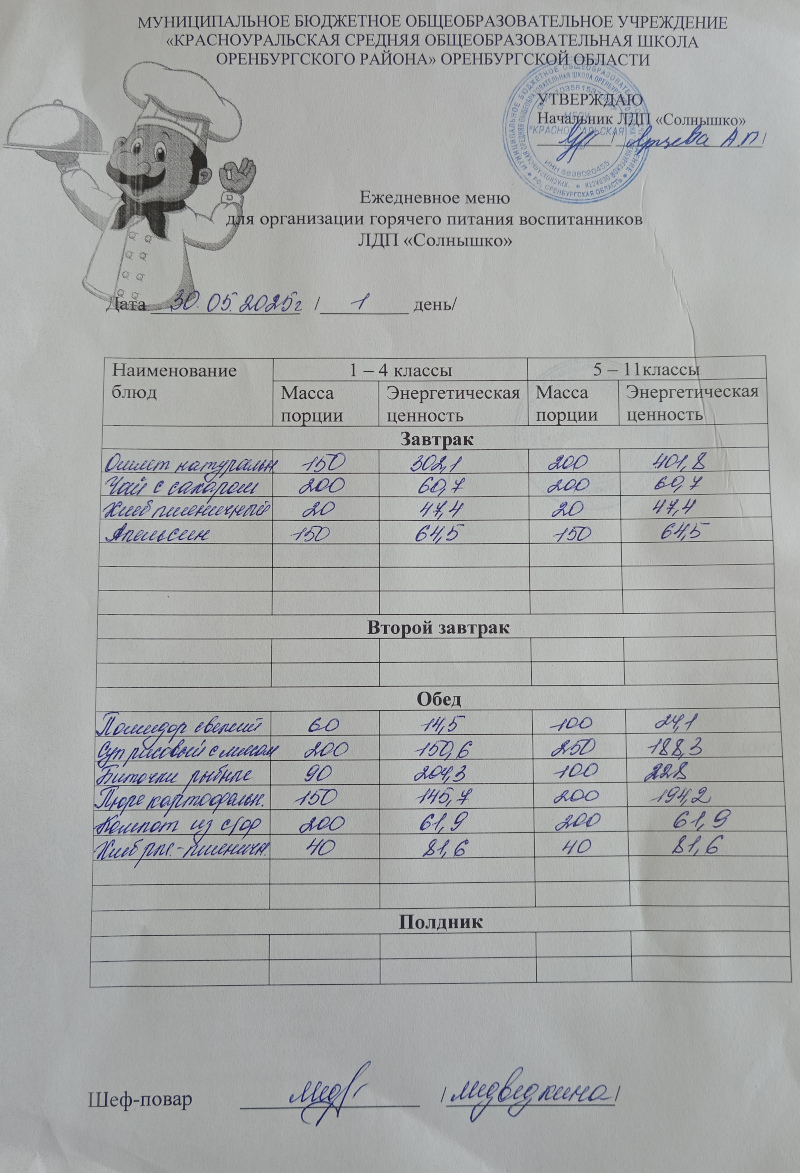 МУНИЦИПАЛЬНОЕ БЮДЖЕТНОЕ ОБЩЕОБРАЗОВАТЕЛЬНОЕ УЧРЕЖДЕНИЕ
«КРАСНОУРАЛЬСКАЯ СРЕДНЯЯ ОБЩЕОБРАЗОВАТЕЛЬНАЯ ШКОЛА
ОРЕНБУРГСКОГО РАЙОНА» ОРЕНБУРГСКОЙ ОБЛАСТИ
УТВЕРЖДАЮ
Начальник ЛДП «Солнышко»
А.П.
Ежедневное меню
для организации горячего питания воспитанников
ЛДП «Солнышко»
Дата 30.05.2025г / 1 день/
Наименование блюд 1 – 4 классы 5 – 11классы
Масса порции Энергетическая ценность Масса порции Энергетическая ценность
Завтрак
Омлет натуральн. 150 302,1 200 401,8
Чай с сахаром 200 60,7 200 60,7
Хлеб пшеничный 20 47,4 20 47,4
Апельсин 150 64,5 150 64,5
Второй завтрак
Обед
Помидор свежий 60 14,5 100 24,1
Суп рисовый с мясом 200 150,6 250 188,3
Биточки рыбные 90 204,3 100 228
Пюре картофельн. 150 145,7 200 194,2
Компот из с/фр 200 61,9 200 61,9
Хлеб рж.-пшеничн. 40 81,6 40 81,6
Полдник
Шеф-повар / Медведкина /